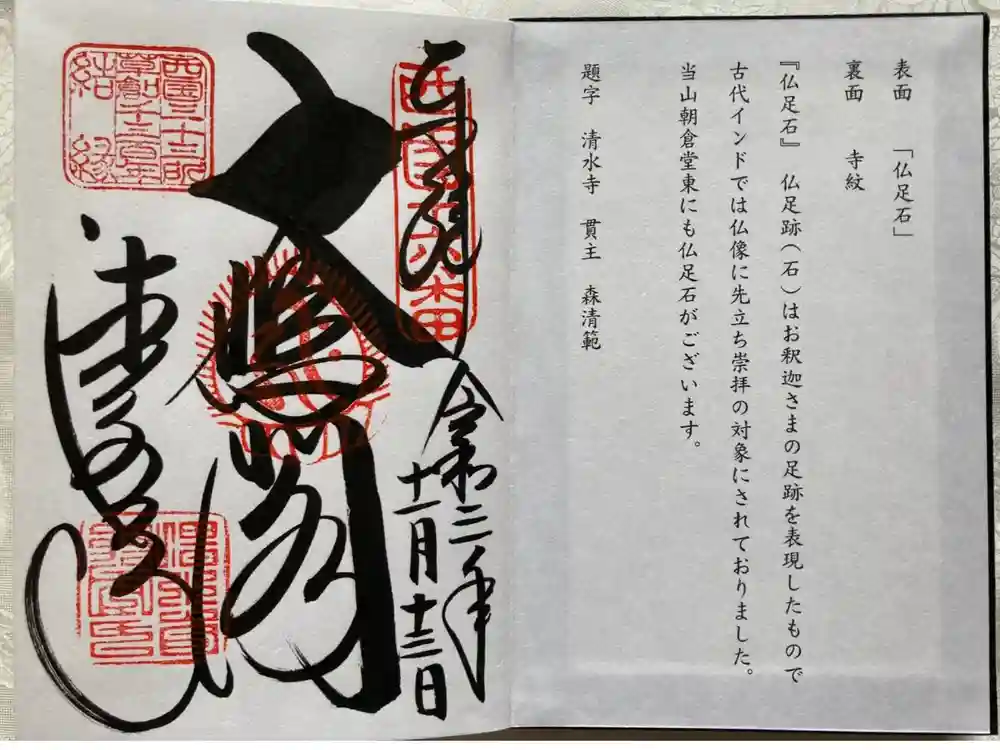 表面 「仏足石」
裏面 寺紋
『仏足石』 仏足跡(石)はお釈迦さまの足跡を表現したもので
古代インドでは仏像に先立ち崇拝の対象にされておりました。
当山朝倉堂東にも仏足石がございます。
題字 清水寺 貫主 森清範
奉拝
西国十六番
令和二年
十一月十三日
大悲閣
西国三十三所
草創千三百年
結縁
清水寺